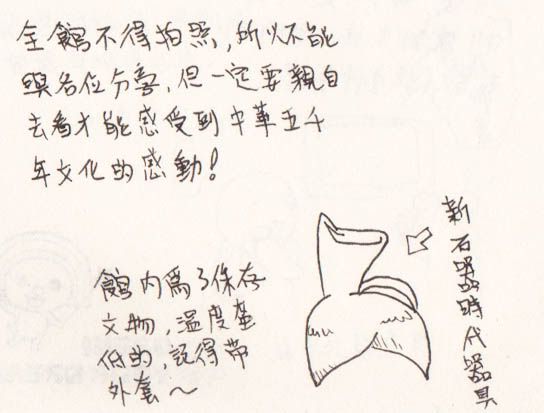 全館不得拍照，所以不能
與各位分享，但一定要親自
去看才能感受到中華五千
年文化的感動！
新石器時代器具
館內為了保存
文物，溫度蠻
低的，記得帶
外套～